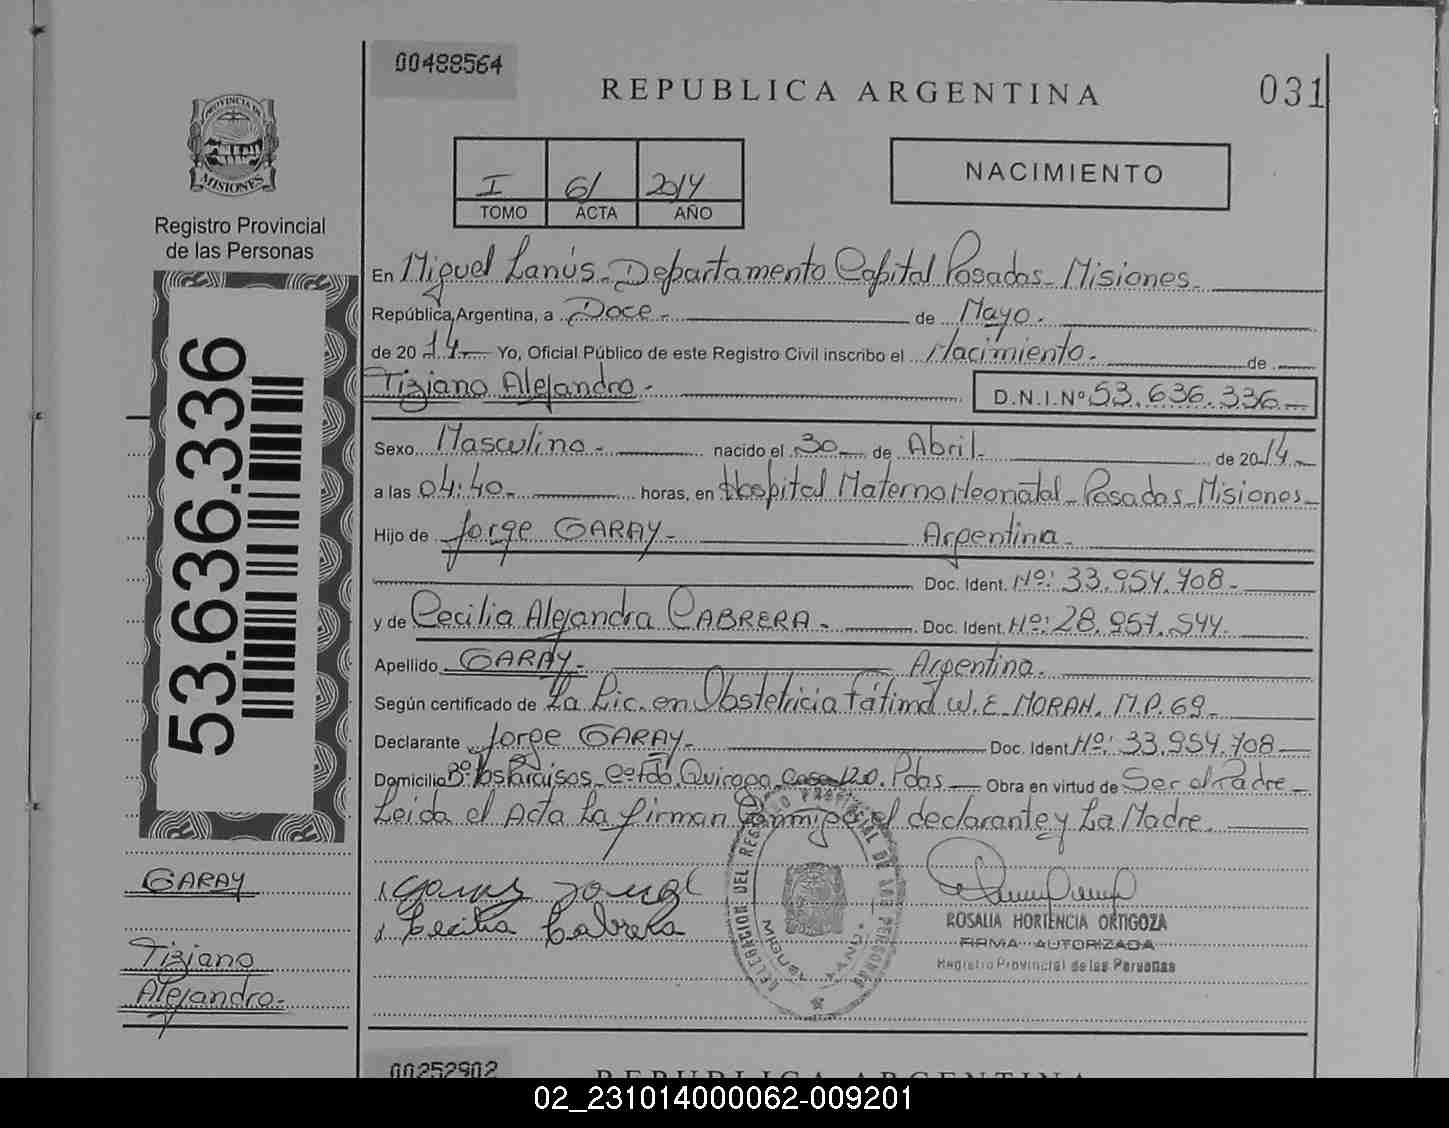 00488564
REPUBLICA ARGENTINA
031
PROVINCIA DE
MISIONES
Registro Provincial
de las Personas
I 61 2014
TOMO ACTA AÑO
NACIMIENTO
En Miguel Lanús - Departamento Capital Posadas - Misiones -
República Argentina, a Doce - de Mayo -
de 20 14 - Yo, Oficial Público de este Registro Civil inscribo el Nacimiento - de
Tiziano Alejandro - D.N.I.Nº 53.636.336 -
Sexo Masculino - nacido el 30 de Abril - de 20 14 -
a las 04:40 - horas, en Hospital Materno Neonatal - Posadas - Misiones -
Hijo de Jorge GARAY - Argentina -
Doc. Ident. Nº: 33.954.708 -
y de Cecilia Alejandra CABRERA - Doc. Ident. Nº: 28.957.544 -
Apellido GARAY - Argentina -
Según certificado de La Lic. en Obstetricia Fátima W.E. MORAN. M.P. 69 -
Declarante Jorge GARAY - Doc. Ident Nº: 33.954.708 -
Domicilio Bº Los Paraisos - Quiroga Casa 120. Pdas - Obra en virtud de Ser el Padre -
Leida el Acta La firman Conmigo el declarante y La Madre.
53.636.336
GARAY
Tiziano
Alejandro -
Cecilia Cabrera
ROSALIA HORTENCIA ORTIGOZA
FIRMA AUTORIZADA
Registro Provincial de las Personas
00252902
REPUBLICA ARGENTINA
02_231014000062-009201